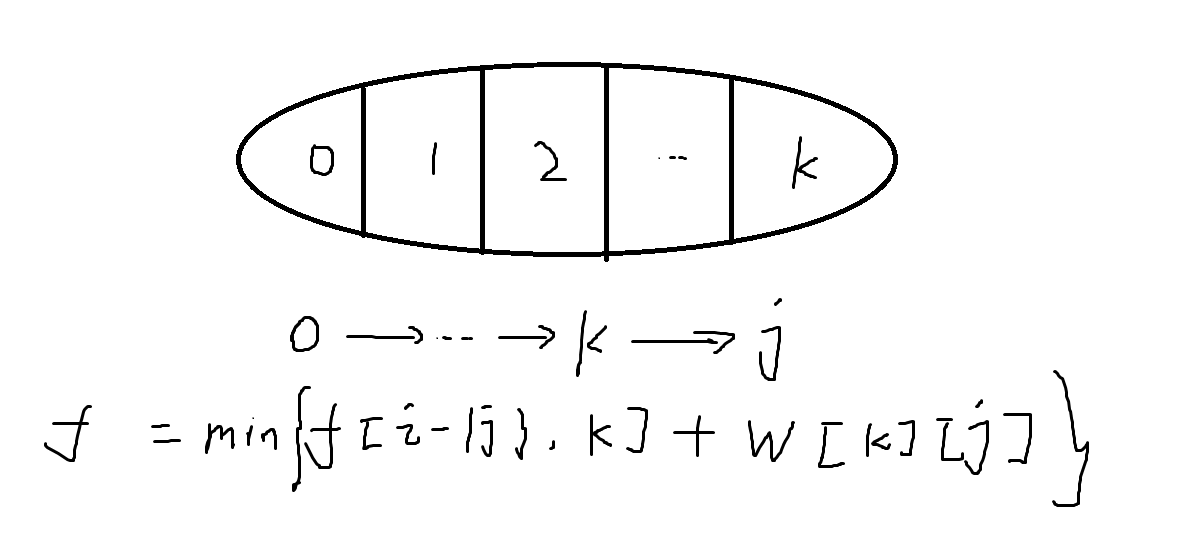 0 1 2 ... k
0 → ... → k → j
f = min{f[i-{j}, k] + w[k][j]}